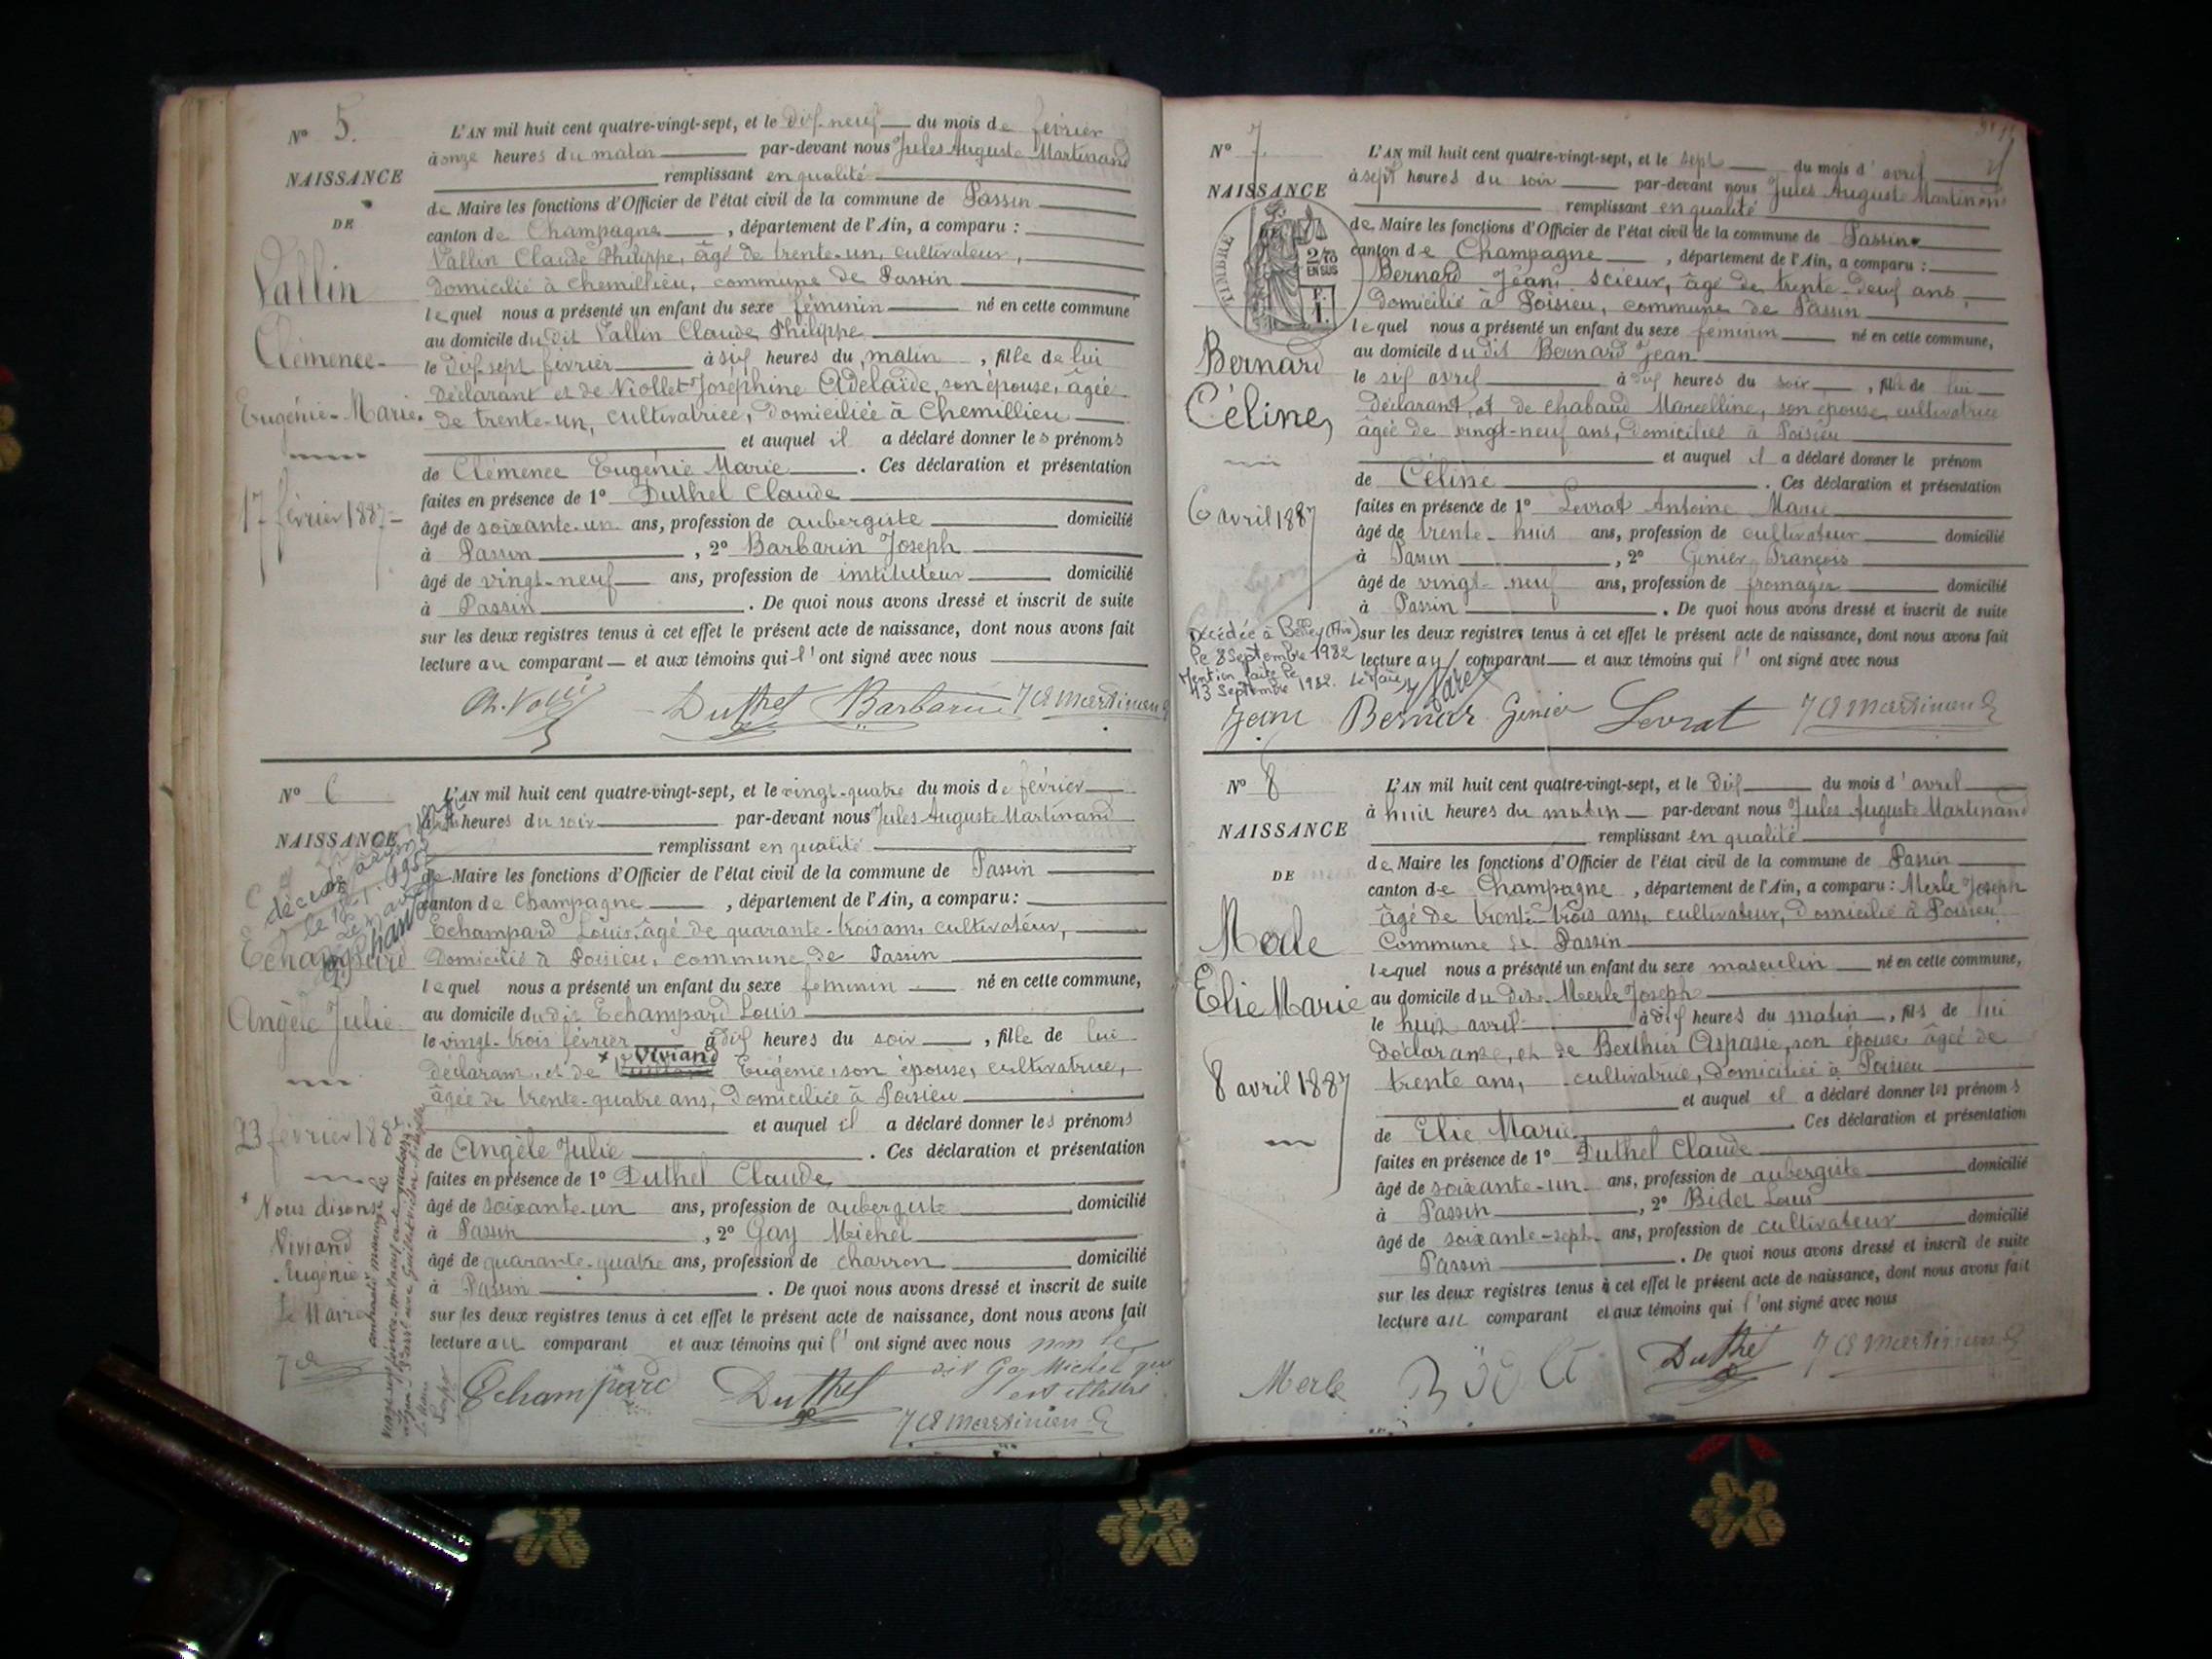 N° 5.
NAISSANCE
DE
Vallin
Clémence
Eugénie-Marie
17 février 1887
L'AN mil huit cent quatre-vingt-sept, et le dix-neuf du mois de février
à onze heures du matin par-devant nous Jules Auguste Martinand
remplissant en qualité
de Maire les fonctions d'Officier de l'état civil de la commune de Passin
canton de Champagne, département de l'Ain, a comparu :
Vallin Claude Philippe, âgé de trente-un, cultivateur,
domicilié à Chemillieu, commune de Passin
lequel nous a présenté un enfant du sexe féminin né en cette commune
au domicile du dit Vallin Claude Philippe
le dix-sept février à six heures du matin, fille de lui
déclarant et de Viollet Joséphine Adélaïde, son épouse, âgée
de trente-un, cultivatrice, domiciliée à Chemillieu
et auquel il a déclaré donner les prénoms
de Clémence Eugénie Marie. Ces déclaration et présentation
faites en présence de 1° Duthel Claude
âgé de soixante-un ans, profession de aubergiste domicilié
à Passin, 2° Barbarin Joseph
âgé de vingt-neuf ans, profession de instituteur domicilié
à Passin. De quoi nous avons dressé et inscrit de suite
sur les deux registres tenus à cet effet le présent acte de naissance, dont nous avons fait
lecture au comparant et aux témoins qui l'ont signé avec nous
Duthel Barbarin J A Martinand
N° 6
NAISSANCE
Echampard
Angèle Julie
23 février 188
Nous disons
Viviand
Eugénie
Le Maire
L'AN mil huit cent quatre-vingt-sept, et le vingt-quatre du mois de février
heures du soir par-devant nous Jules Auguste Martinand
remplissant en qualité
de Maire les fonctions d'Officier de l'état civil de la commune de Passin
canton de Champagne, département de l'Ain, a comparu :
Echampard Louis, âgé de quarante-trois ans, cultivateur,
domicilié à Poisieu, commune de Passin
lequel nous a présenté un enfant du sexe féminin né en cette commune,
au domicile du dit Echampard Louis
le vingt-trois février à dix heures du soir, fille de lui
déclarant, et de Viviand Eugénie, son épouse, cultivatrice,
âgée de trente-quatre ans, domiciliée à Poisieu
et auquel il a déclaré donner les prénoms
de Angèle Julie. Ces déclaration et présentation
faites en présence de 1° Duthel Claude
âgé de soixante-un ans, profession de aubergiste domicilié
à Passin, 2° Gay Michel
âgé de quarante-quatre ans, profession de charron domicilié
à Passin. De quoi nous avons dressé et inscrit de suite
sur les deux registres tenus à cet effet le présent acte de naissance, dont nous avons fait
lecture au comparant et aux témoins qui l'ont signé avec nous non le
dit Gay Michel qui
est illettré
Echampard Duthel
J A Martinand
N° 7
NAISSANCE
TIMBRE
2/10
EN SUS
Bernard
Céline
6 avril 1887
Décédée à Belley (Ain)
le 8 Septembre 1982
Mention faite le
13 Septembre 1982. Le Maire
L'AN mil huit cent quatre-vingt-sept, et le sept du mois d'avril
à sept heures du soir par-devant nous Jules Auguste Martinand
remplissant en qualité
de Maire les fonctions d'Officier de l'état civil de la commune de Passin
canton de Champagne, département de l'Ain, a comparu :
Bernard Jean, scieur, âgé de trente-deux ans,
domicilié à Poisieu, commune de Passin
lequel nous a présenté un enfant du sexe féminin né en cette commune,
au domicile du dit Bernard Jean
le six avril à dix heures du soir, fille de lui
déclarant, et de Chabaud Marcelline, son épouse, cultivatrice
âgée de vingt-neuf ans, domiciliée à Poisieu
et auquel il a déclaré donner le prénom
de Céline. Ces déclaration et présentation
faites en présence de 1° Levrat Antoine Marie
âgé de trente-huit ans, profession de cultivateur domicilié
à Passin, 2° Genier François
âgé de vingt-neuf ans, profession de fromager domicilié
à Passin. De quoi nous avons dressé et inscrit de suite
sur les deux registres tenus à cet effet le présent acte de naissance, dont nous avons fait
lecture au comparant et aux témoins qui l'ont signé avec nous
Jean Bernar Genier Levrat J A Martinand
N° 8
NAISSANCE
DE
Merle
Elie Marie
8 avril 1887
L'AN mil huit cent quatre-vingt-sept, et le dix du mois d'avril
à huit heures du matin par-devant nous Jules Auguste Martinand
remplissant en qualité
de Maire les fonctions d'Officier de l'état civil de la commune de Passin
canton de Champagne, département de l'Ain, a comparu : Merle Joseph
âgé de trente-trois ans, cultivateur, domicilié à Poisieu
Commune de Passin
lequel nous a présenté un enfant du sexe masculin né en cette commune,
au domicile du dit Merle Joseph
le huit avril à dix heures du matin, fils de lui
déclarant, et de Berthier Aspasie, son épouse âgée de
trente ans, cultivatrice, domiciliée à Poisieu
et auquel il a déclaré donner les prénoms
de Elie Marie. Ces déclaration et présentation
faites en présence de 1° Duthel Claude
âgé de soixante-un ans, profession de aubergiste domicilié
à Passin, 2° Bidet Louis
âgé de soixante-sept ans, profession de cultivateur domicilié
Passin. De quoi nous avons dressé et inscrit de suite
sur les deux registres tenus à cet effet le présent acte de naissance, dont nous avons fait
lecture au comparant et aux témoins qui l'ont signé avec nous
Merle Duthel J A Martinand